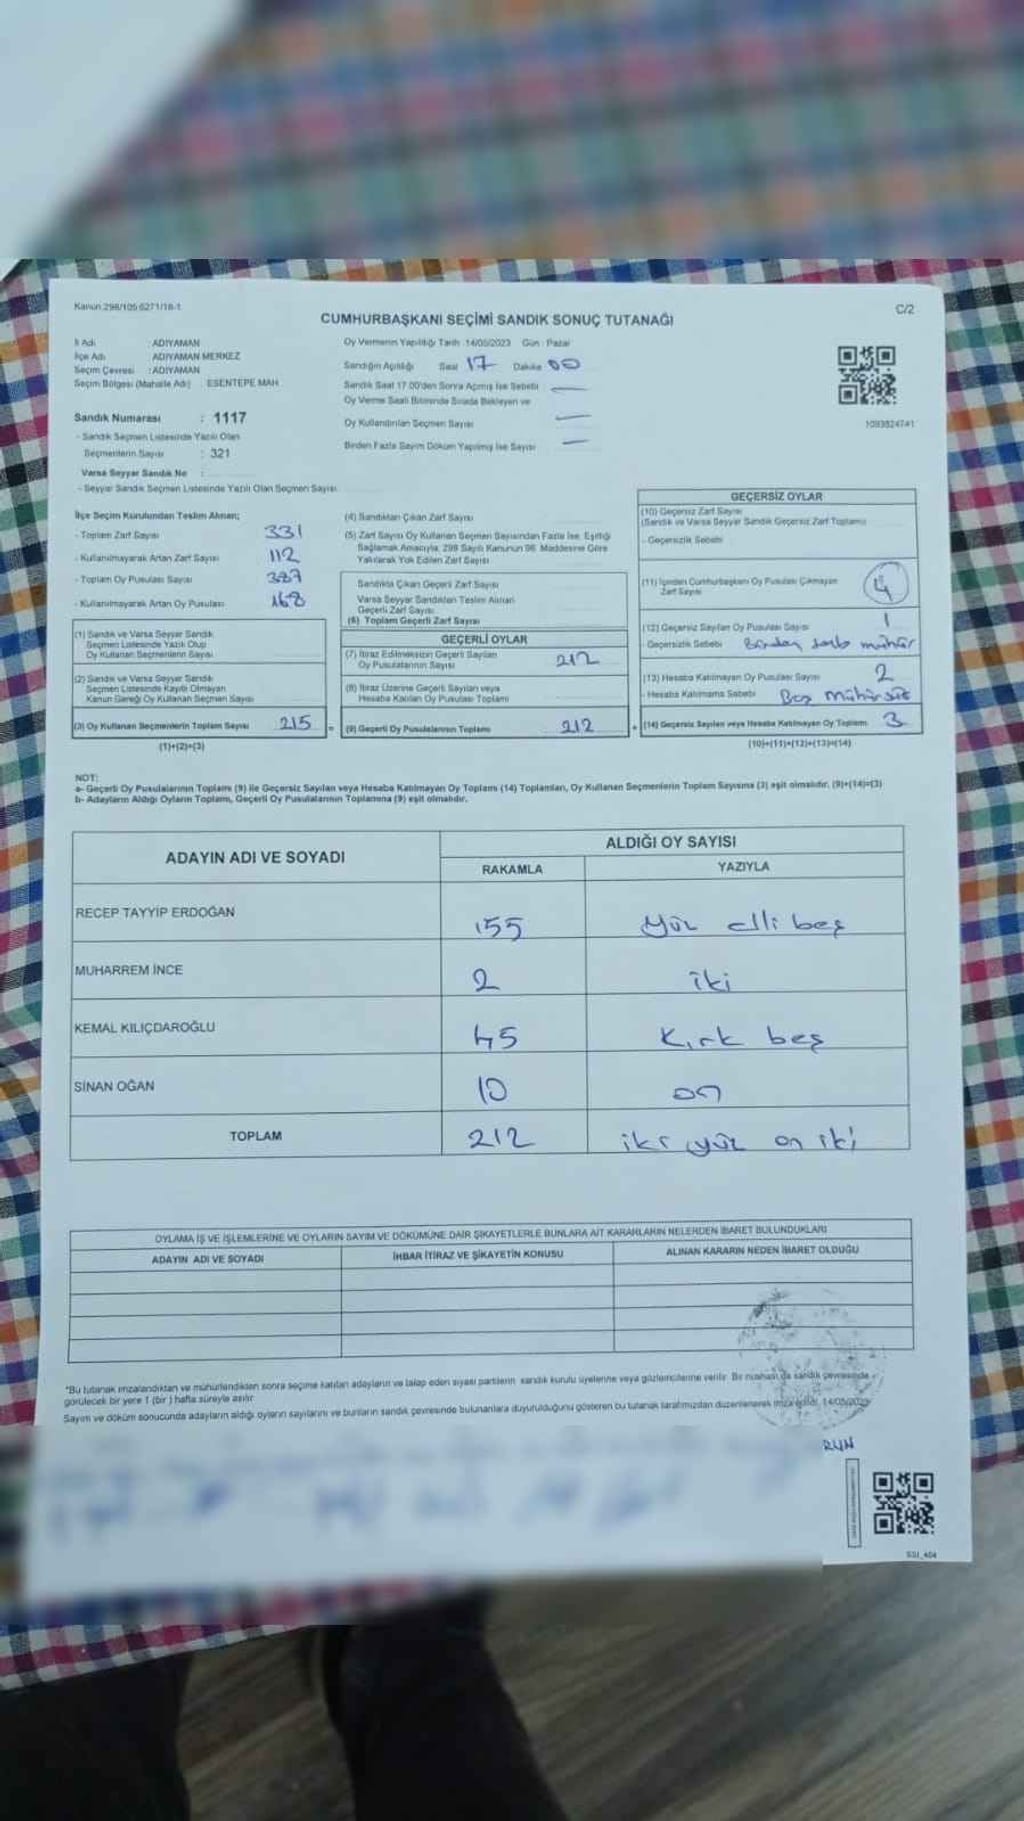 Kanun 298/105 6271/18-1
C/2
CUMHURBAŞKANI SEÇİMİ SANDIK SONUÇ TUTANAĞI
İl Adı : ADIYAMAN
İlçe Adı : ADIYAMAN MERKEZ
Seçim Çevresi : ADIYAMAN
Seçim Bölgesi (Mahalle Adı) : ESENTEPE MAH
Sandık Numarası : 1117
- Sandık Seçmen Listesinde Yazılı Olan
Seçmenlerin Sayısı : 321
Varsa Seyyar Sandık No :
- Seyyar Sandık Seçmen Listesinde Yazılı Olan Seçmen Sayısı
Oy Vermenin Yapıldığı Tarih : 14/05/2023 Gün : Pazar
Sandığın Açıldığı Saat 17 Dakika 00
Sandık Saat 17.00'den Sonra Açmış İse Sebebi —
Oy Verme Saati Bitiminde Sırada Bekleyen ve
Oy Kullandırılan Seçmen Sayısı —
Birden Fazla Sayım Döküm Yapılmış İse Sayısı —
1093824741
İlçe Seçim Kurulundan Teslim Alınan;
- Toplam Zarf Sayısı 331
- Kullanılmayarak Artan Zarf Sayısı 112
- Toplam Oy Pusulası Sayısı
- Kullanılmayarak Artan Oy Pusulası 168
(1) Sandık ve Varsa Seyyar Sandık
Seçmen Listesinde Yazılı Olup
Oy Kullanan Seçmenlerin Sayısı
(2) Sandık ve Varsa Seyyar Sandık
Seçmen Listesinde Kayıtlı Olmayan
Kanun Gereği Oy Kullanan Seçmen Sayısı
(3) Oy Kullanan Seçmenlerin Toplam Sayısı 215 =
(1)+(2)=(3)
(4) Sandıktan Çıkan Zarf Sayısı
(5) Zarf Sayısı Oy Kullanan Seçmen Sayısından Fazla İse, Eşitliği
Sağlamak Amacıyla, 298 Sayılı Kanunun 98. Maddesine Göre
Yakılarak Yok Edilen Zarf Sayısı
Sandıkta Çıkan Geçerli Zarf Sayısı
Varsa Seyyar Sandıkları Teslim Alınan
Geçerli Zarf Sayısı
(6) Toplam Geçerli Zarf Sayısı
GEÇERLİ OYLAR
(7) İtiraz Edilmeksizin Geçerli Sayılan
Oy Pusulalarının Sayısı 212
(8) İtiraz Üzerine Geçerli Sayılan veya
Hesaba Katılan Oy Pusulası Toplamı
(9) Geçerli Oy Pusulalarının Toplamı 212 +
GEÇERSİZ OYLAR
(10) Geçersiz Zarf Sayısı
(Sandık ve Varsa Seyyar Sandık Geçersiz Zarf Toplamı)
- Geçersizlik Sebebi
(11) İçinden Cumhurbaşkanı Oy Pusulası Çıkmayan
Zarf Sayısı 4
(12) Geçersiz Sayılan Oy Pusulası Sayısı 1
- Geçersizlik Sebebi Birden fazla mühür
(13) Hesaba Katılmayan Oy Pusulası Sayısı 2
- Hesaba Katılmama Sebebi Boş mühürsüz
(14) Geçersiz Sayılan veya Hesaba Katılmayan Oy Toplamı 3
(10)+(11)+(12)+(13)=(14)
NOT:
a- Geçerli Oy Pusulalarının Toplamı (9) ile Geçersiz Sayılan veya Hesaba Katılmayan Oy Toplamı (14) Toplamları, Oy Kullanan Seçmenlerin Toplam Sayısına (3) eşit olmalıdır. (9)+(14)=(3)
b- Adayların Aldığı Oyların Toplamı, Geçerli Oy Pusulalarının Toplamına (9) eşit olmalıdır.
ADAYIN ADI VE SOYADI
ALDIĞI OY SAYISI
RAKAMLA YAZIYLA
RECEP TAYYİP ERDOĞAN 155 yüz elli beş
MUHARREM İNCE 2 iki
KEMAL KILIÇDAROĞLU 45 kırk beş
SİNAN OĞAN 10 on
TOPLAM 212 iki yüz on iki
OYLAMA İŞ VE İŞLEMLERİNE VE OYLARIN SAYIM VE DÖKÜMÜNE DAİR ŞİKAYETLERLE BUNLARA AİT KARARLARIN NELERDEN İBARET BULUNDUKLARI
ADAYIN ADI VE SOYADI İHBAR İTİRAZ VE ŞİKAYETİN KONUSU ALINAN KARARIN NEDEN İBARET OLDUĞU
*Bu tutanak imzalandıktan ve mühürlendikten sonra seçime katılan adayların ve talep eden siyasi partilerin sandık kurulu üyelerine veya gözlemcilerine verilir. Bir nüshası da sandık çevresinde
görülecek bir yere 1 (bir ) hafta süreyle asılır
Sayım ve döküm sonucunda adayların aldığı oyların sayılarını ve bunların sandık çevresinde bulunanlara duyurulduğunu gösteren bu tutanak tarafımızdan düzenlenerek imza edildi. 14/05/2023
RUN